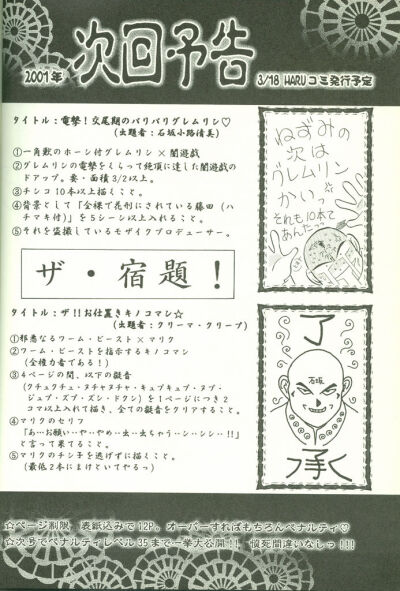 2001年 次回予告 3/18 HARUコミ発行予定
タイトル：電撃！交尾期のバリバリグレムリン♡
（出題者：石坂小路清美）
①一角獣のホーン付グレムリン×闇遊戯
②グレムリンの電撃をくらって絶頂に達した闇遊戯の
ドアップ。要・面積3/2以上。
③チンコ10本以上描くこと。
④背景として「全裸で花刑にされている藤田（ハ
チマキ付）」を5シーン以上入れること。
⑤それを盗撮しているモザイクプロデューサー。
ねずみの
次は
グレムリン
かいっ
それも10本て
あんたっ??
ザ・宿題！
タイトル：ザ!!お仕置きキノコマン☆
（出題者：クリーマ・クリープ）
①邪悪なるワーム・ビースト×マリク
②ワーム・ビーストを指示するキノコマン
（全権力者である！）
③4ページの間、以下の擬音
（クチュクチュ・ヌチャヌチャ・キュプキュプ・ヌプ・
ジュプ・ズプ・ズン・ドクン）を1ページにつき2
コマ以上入れて描き、全ての擬音をクリアすること。
④マリクのセリフ
「あ‥お願い‥や‥やめ‥虫‥虫ちゃう‥シ‥シシ‥!!」
と言って果てること。
⑤マリクのチン子を逃げずに描くこと。
（最低2本にまけといてやるっ）
了
石坂
承
☆ページ制限、表紙込みで12P。オーバーすればもちろんペナルティ♡
☆次号でペナルティレベル35まで一挙大公開！！ 悶死間違いなしっ!!!